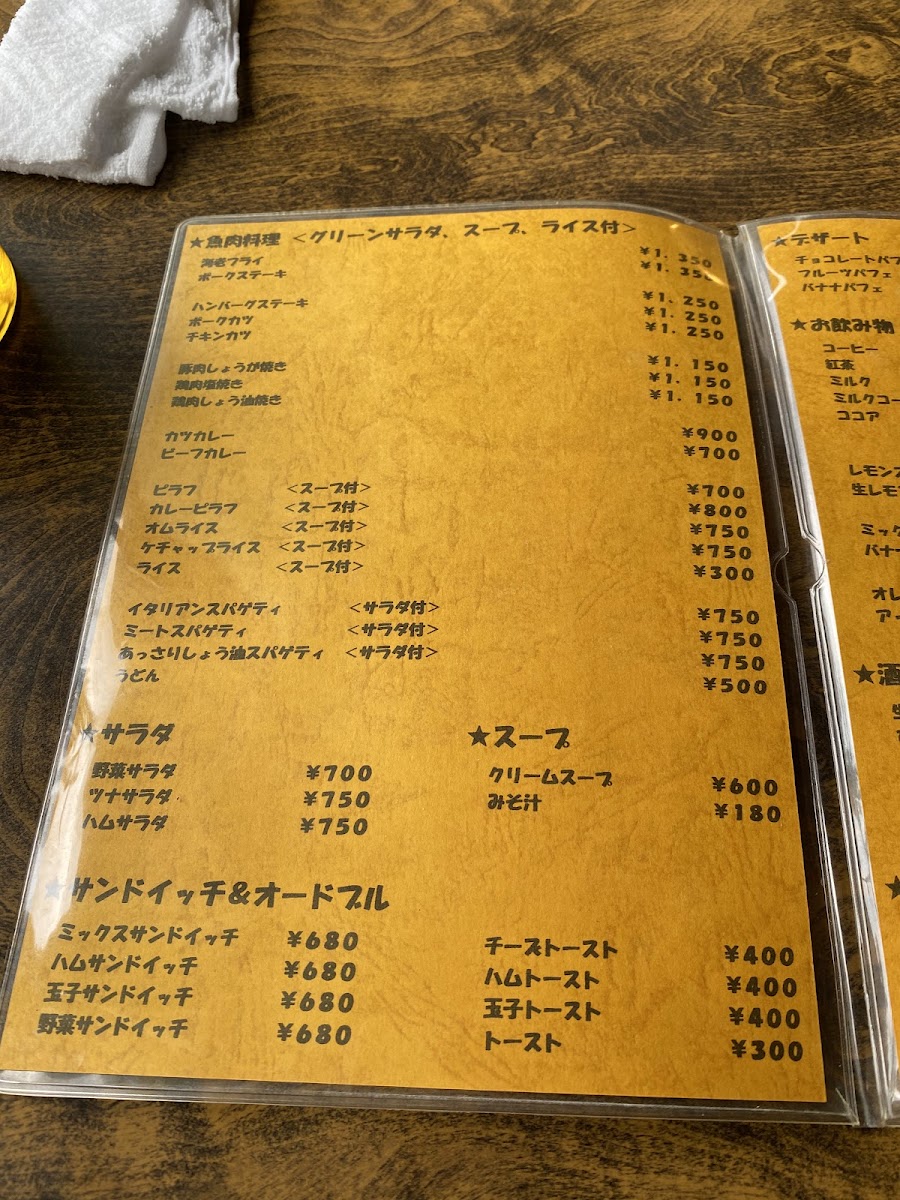 ★魚肉料理 <グリーンサラダ、スープ、ライス付>
海老フライ ¥1.350
ポークステーキ ¥1.350
ハンバーグステーキ ¥1.250
ポークカツ ¥1.250
チキンカツ ¥1.250
豚肉しょうが焼き ¥1.150
鶏肉塩焼き ¥1.150
鶏肉しょう油焼き ¥1.150
カツカレー ¥900
ビーフカレー ¥700
ピラフ <スープ付> ¥700
カレーピラフ <スープ付> ¥800
オムライス <スープ付> ¥750
ケチャップライス <スープ付> ¥750
ライス <スープ付> ¥300
イタリアンスパゲティ <サラダ付> ¥750
ミートスパゲティ <サラダ付> ¥750
あっさりしょう油スパゲティ <サラダ付> ¥750
うどん ¥500
★サラダ
野菜サラダ ¥700
ツナサラダ ¥750
ハムサラダ ¥750
★スープ
クリームスープ ¥600
みそ汁 ¥180
★サンドイッチ&オードブル
ミックスサンドイッチ ¥680
ハムサンドイッチ ¥680
玉子サンドイッチ ¥680
野菜サンドイッチ ¥680
チーズトースト ¥400
ハムトースト ¥400
玉子トースト ¥400
トースト ¥300
★デザート
チョコレートパフ
フルーツパフェ
バナナパフェ
★お飲み物
コーヒー
紅茶
ミルク
ミルクコー
ココア
レモンス
生レモ
ミック
バナナ
オレ
アイ
★酒
生
★